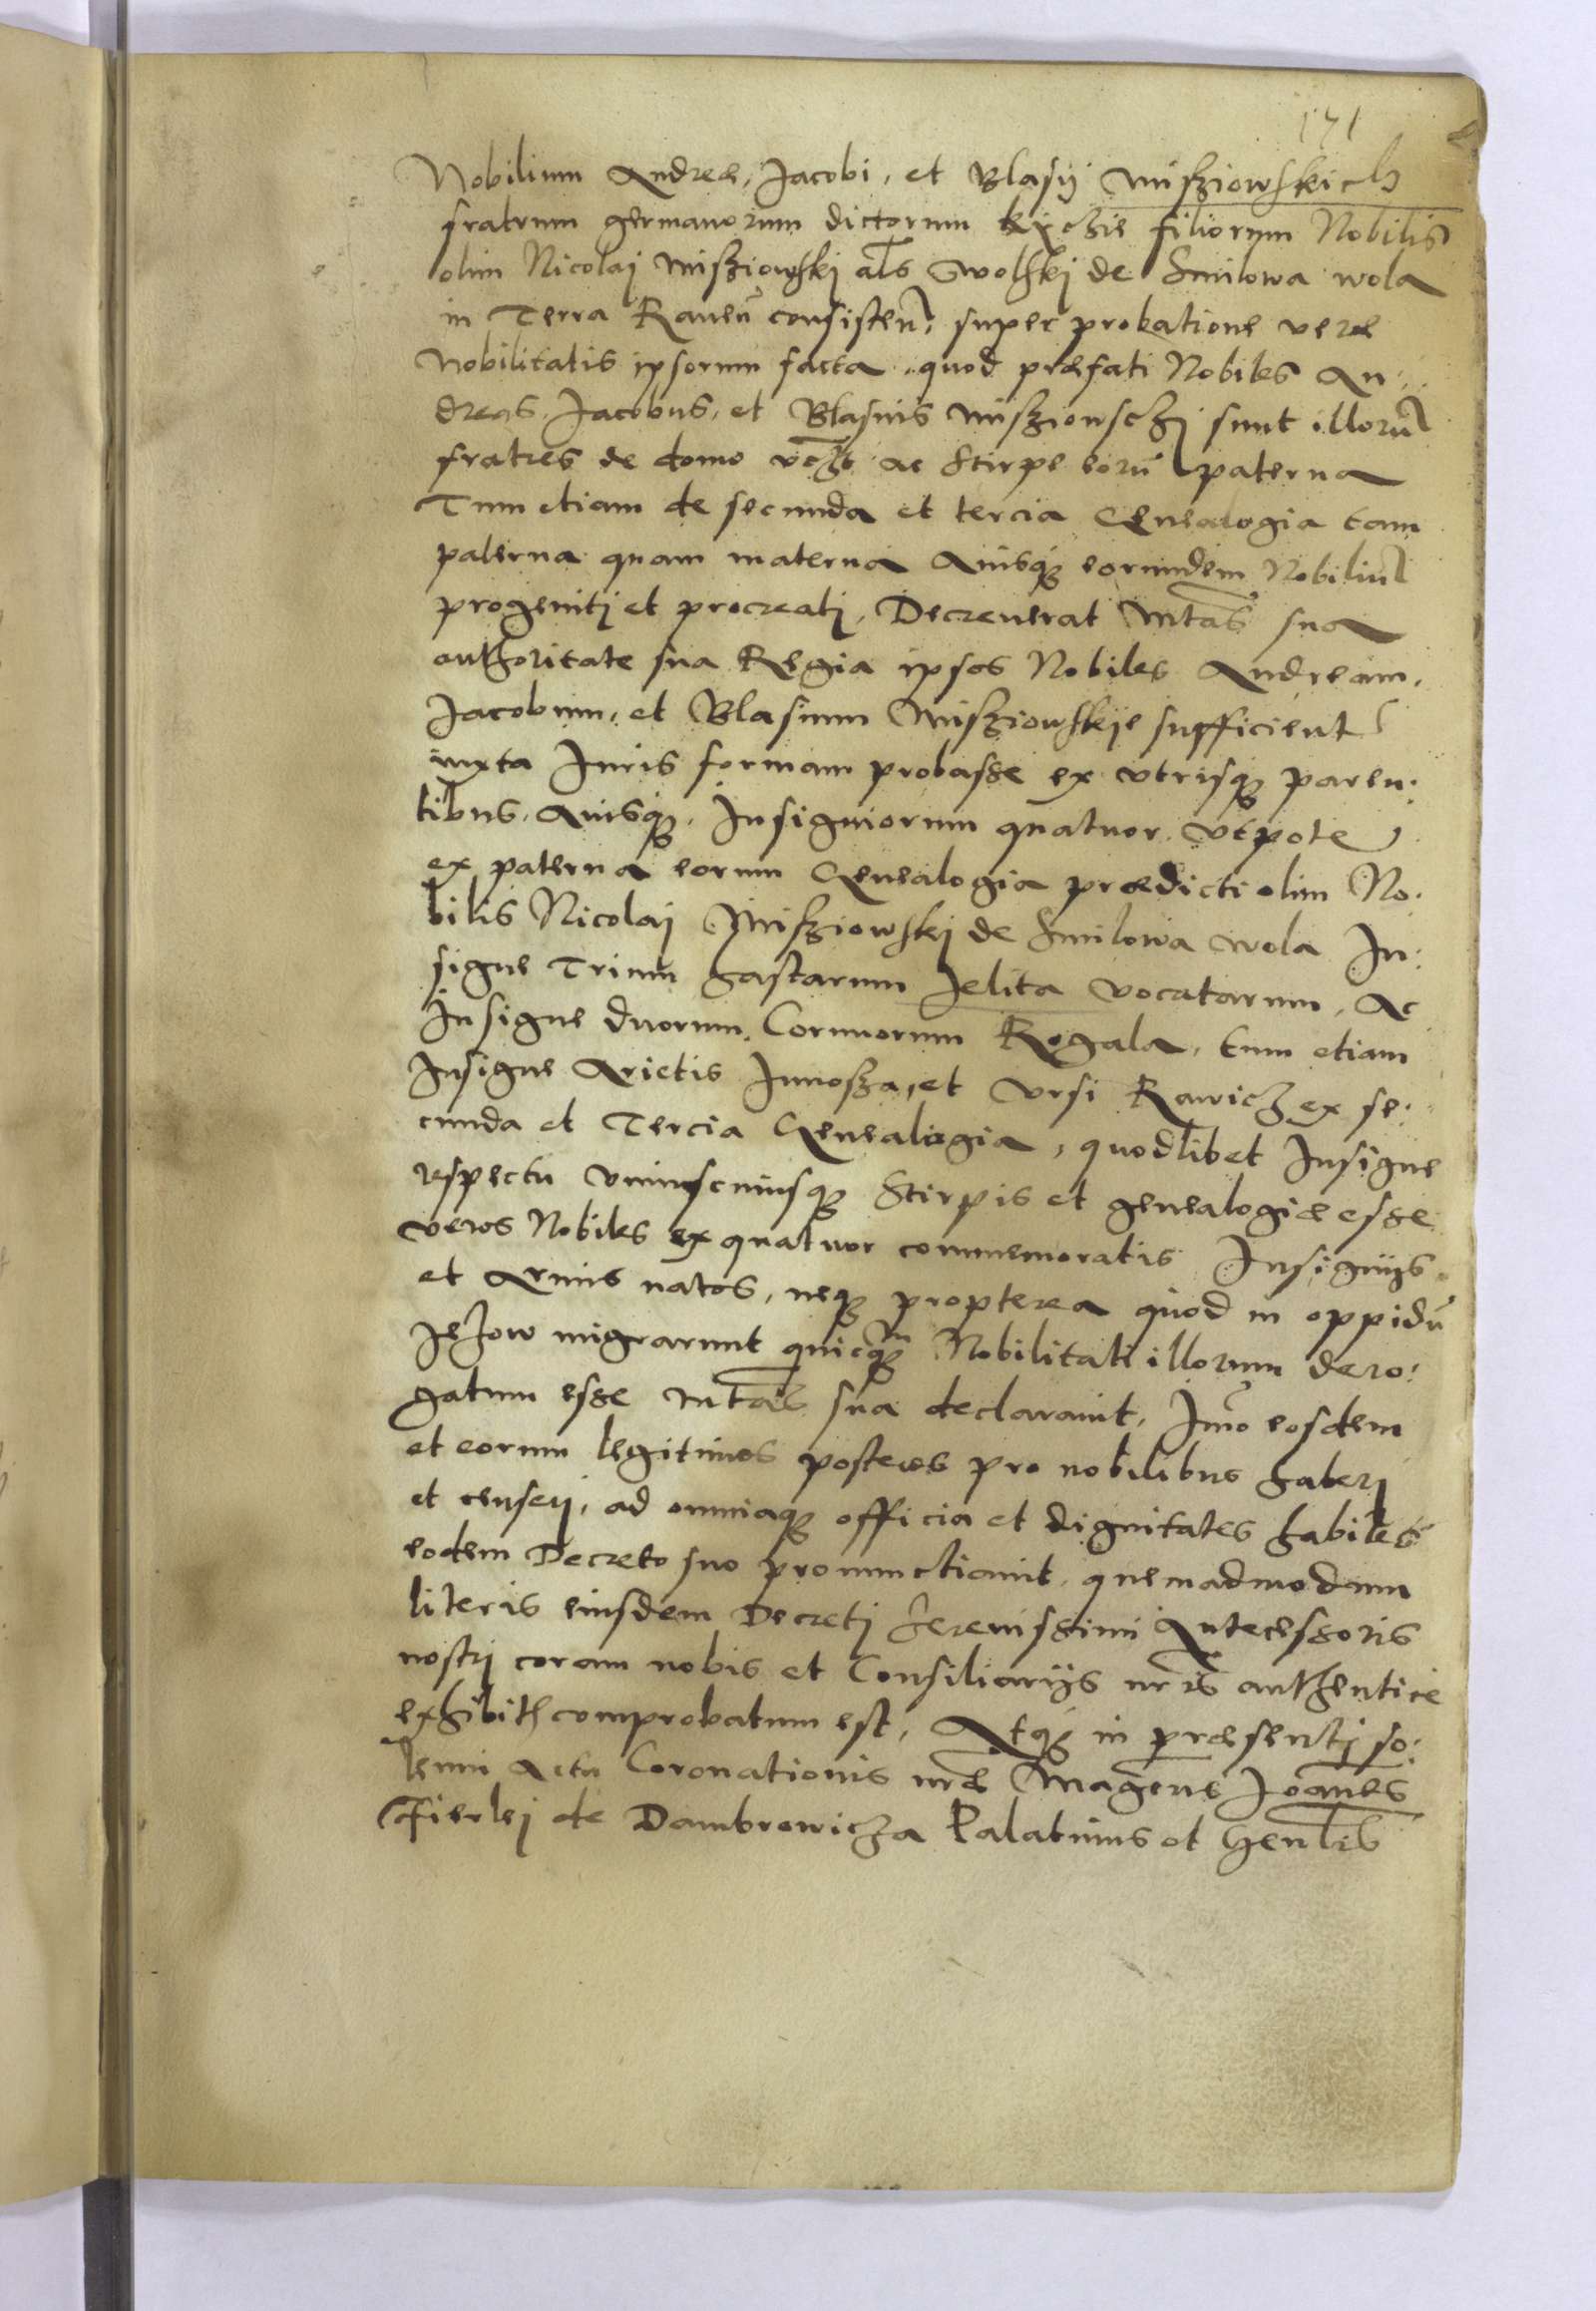 171
Nobilium Andreæ, Jacobi, et Blasij Misziowskich
fratrum germanorum dictorum filiorum Nobilis
olim Nicolaj Misziowskj als Wolskj de Smilowa wola
in Terra Raueñ consisteñ, super probatione veræ
Nobilitatis ipsorum facta, quod præfati Nobiles An:
dreas, Jacobus, et Blasius Miszionschj sunt illorũ
fratres de domo ac Stirpe eorũ paterna
Tum etiam de secunda et tercia Genealogia tam
paterna quam materna Auisq; eorumdem Nobiliũ
progenitj et procreatj, Decreuerat Mtas sua
authoritate sua Regia ipsos Nobiles Andream,
Jacobum, et Blasium Misziowskje sufficient
iuxta Juris formam probasse ex vtrisq; paren:
tibus, Auisq; Insigniorum quatuor vtpote
ex paterna eorum Genealogia prædicti olim No:
bilis Nicolaj Misziowskj de Smilowa wola In:
signe Trium hastarum Jelita vocatarum, Ac
Insigne duorum Cornuorum Rogala, tum etiam
Insigne Arietis Junosza, et Vrsi Rawicz ex se:
cunda et Tercia Genealogia, quodlibet Insigne
respectu vniuscuiusq; Stirpis et genealogiæ esse
veros Nobiles ex quatuor commemoratis Insignijs
et Armis natos, neq; propterea quod in oppidũ
Jeżow migrarunt quicq̃; Nobilitati illorum dero:
gatum esse Mtas sua declarauit, Imo eosdem
et eorum legitimos posteros pro nobilibus haberj
et censerj, ad omniaq; officia et dignitates habiles
eodem Decreto suo pronunctiauit, quemadmodum
literis eiusdem Decretj Serenissimi Antecessoris
nostrj coram nobis et Consiliarijs nris authentice
exhibit comprobatum est, Atq; in præsentj so:
lenni Actu Coronationis nræ Magcus Joanes
Fierlej de Dambrowicza Palatinus et Gen